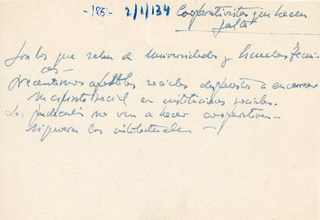 -185- 2/1/134 Cooperativistas que hacen
falta
Son los que salen de Universidades y Escuelas Técni-
cas -
Necesitamos apóstoles sociales dispuestos a encarnar
su espíritu social en instituciones sociales.
Los no van a hacer cooperativas -
Siquiera los intelectuales -